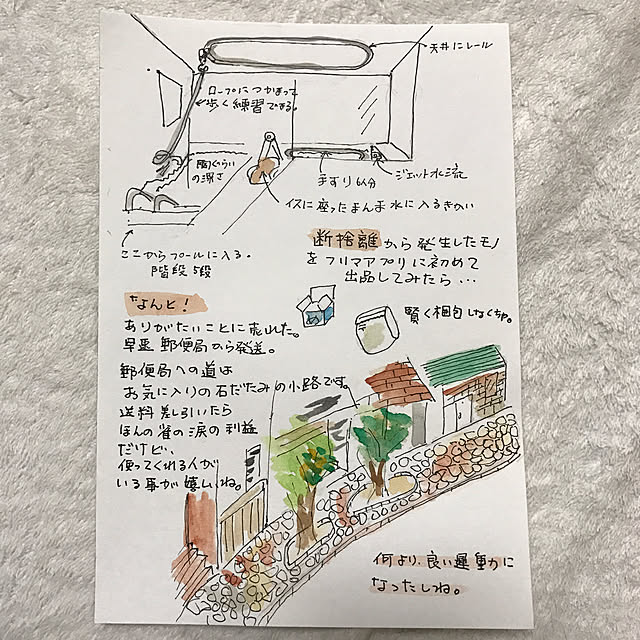 天井にレール
ロープにつかまって
歩く練習できる。
胸くらい
の深さ
手すり6人分
ジェット水流
イスに座ったまんま水に入るきかい
ここからプールに入る。
階段5段
断捨離から発生したモノ
をフリマアプリに初めて
出品してみたら…
なんと!
ありがたいことに売れた。
早速郵便局から発送。
賢く梱包しなくちゃ。
郵便局への道は
お気に入りの石だたみの小路です。
送料差し引いたら
ほんの雀の涙の利益
だけど、
使ってくれる人が
いる事が嬉しいね。
何より、良い運動に
なったしね。